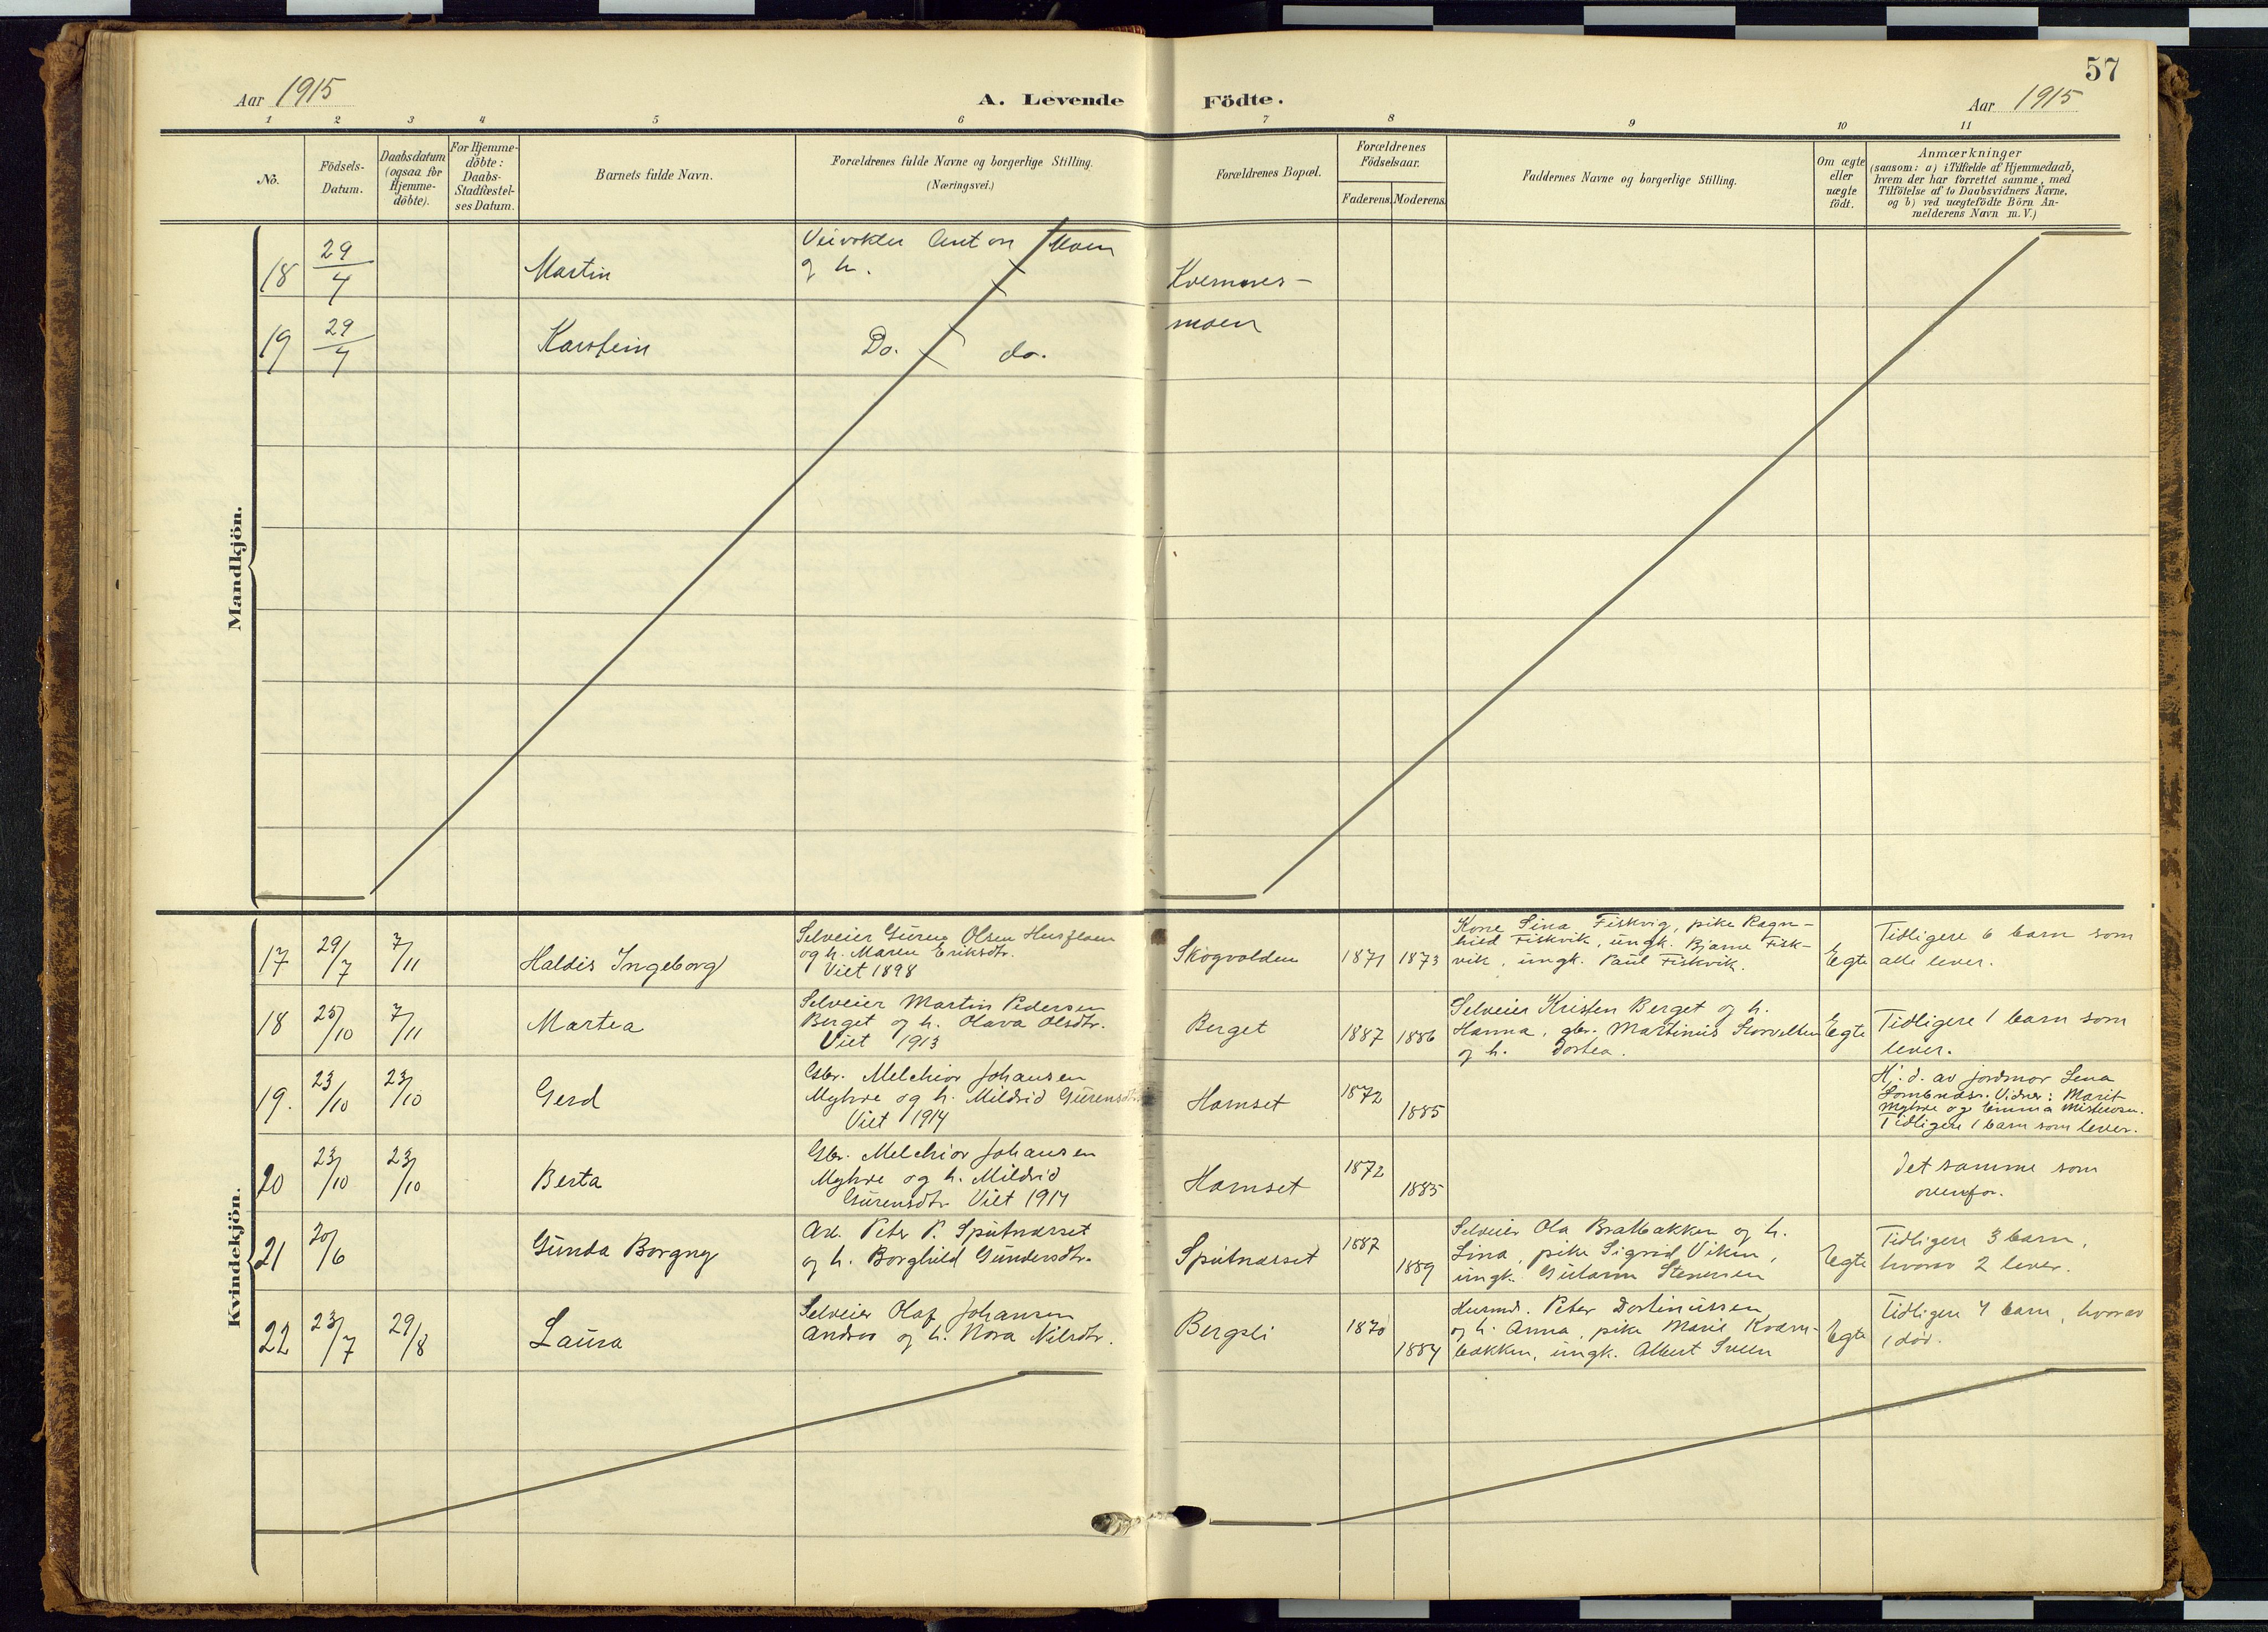 57
Aar 1915
A. Levende Födte.
Aar 1915
1 2 3 4 5 6 7 8 9 10 11
No.
Födsels-
Datum.
Daabsdatum
(ogsaa for
Hjemme-
döbte).
For Hjemme-
döbte:
Daabs-
Stadfæstel-
ses Datum.
Barnets fulde Navn.
Forældrenes fulde Navne og borgerlige Stilling.
(Næringsvei.)
Forældrenes Bopæl.
Forældrenes
Födselsaar.
Faderens. Moderens.
Faddernes Navne og borgerlige Stilling.
Om ægte
eller
uægte
födt.
Anmærkninger
(saasom: a) i Tilfælde af Hjemmedaab,
hvem der har forrettet samme, med
Tilföielse af to Daabsvidners Navne.
og b) ved uægtefödte Börn An-
melderens Navn m. V.)
Mandkjön.
18 29/4 Martin
Veivokter Anton Moen
og h.
Kvernnes-
moen
19 29/4 Karstein Do. do.
Kvindekjön.
17 29/7 7/11 Haldis Ingeborg
Selveier Guren Olsen
og h. Maren Eriksdtr.
Viet 1898
Skogvolden 1871 1873
Kone Lina Fiskvig, pike Ragn-
hild Fiskvik, ungk. Bjarne Fisk-
vik, ungk. Paul Fiskvik.
Egte
Tidligere 6 barn som
alle lever.
18 25/10 7/11 Martea
Selveier Martin Pedersen
Berget og h. Olava Olsdtr.
Viet 1913
Berget 1887 1886
Selveier Kristen Berget og h.
Hanna, gbr. Martinus Storvelten
og h. Dortea.
Egte
Tidligere 1 barn som
lever.
19. 23/10 23/10 Gerd
Gbr. Melchior Johansen
Myhre og h. Mildrid Gurensdtr.
Viet 1914
Hamset 1872 1885
Hj. d. av jordmor Lena
Vidner: Marit
Myhre og Emma
Tidligere 1 barn som lever.
20 23/10 23/10 Berta
Gbr. Melchior Johansen
Myhre og h. Mildrid
Gurensdtr. Viet 1914
Hamset 1872 1885
Det samme som
ovenfor.
21 20/6 Gunda Borgny
Arb. Peter P. Sputnæsset
og h. Borghild Gundersdtr.
Sputnæsset 1887 1889
Selveier Ola Bratbakken og h.
Lina, pike Sigrid Viken,
ungk. Stenersen
Egte
Tidligere 3 barn,
hvorav 2 lever.
22 23/7 29/8 Laura
Selveier Olaf Johansen
og h. Nora Nilsdtr.
Bergsli 1870 1884
Husmd. Peter Dortinussen
og h. Anna, pike Marie Kværn-
bakken, ungk. Albert Sveen
Egte
Tidligere 4 barn, hvorav
1 død.